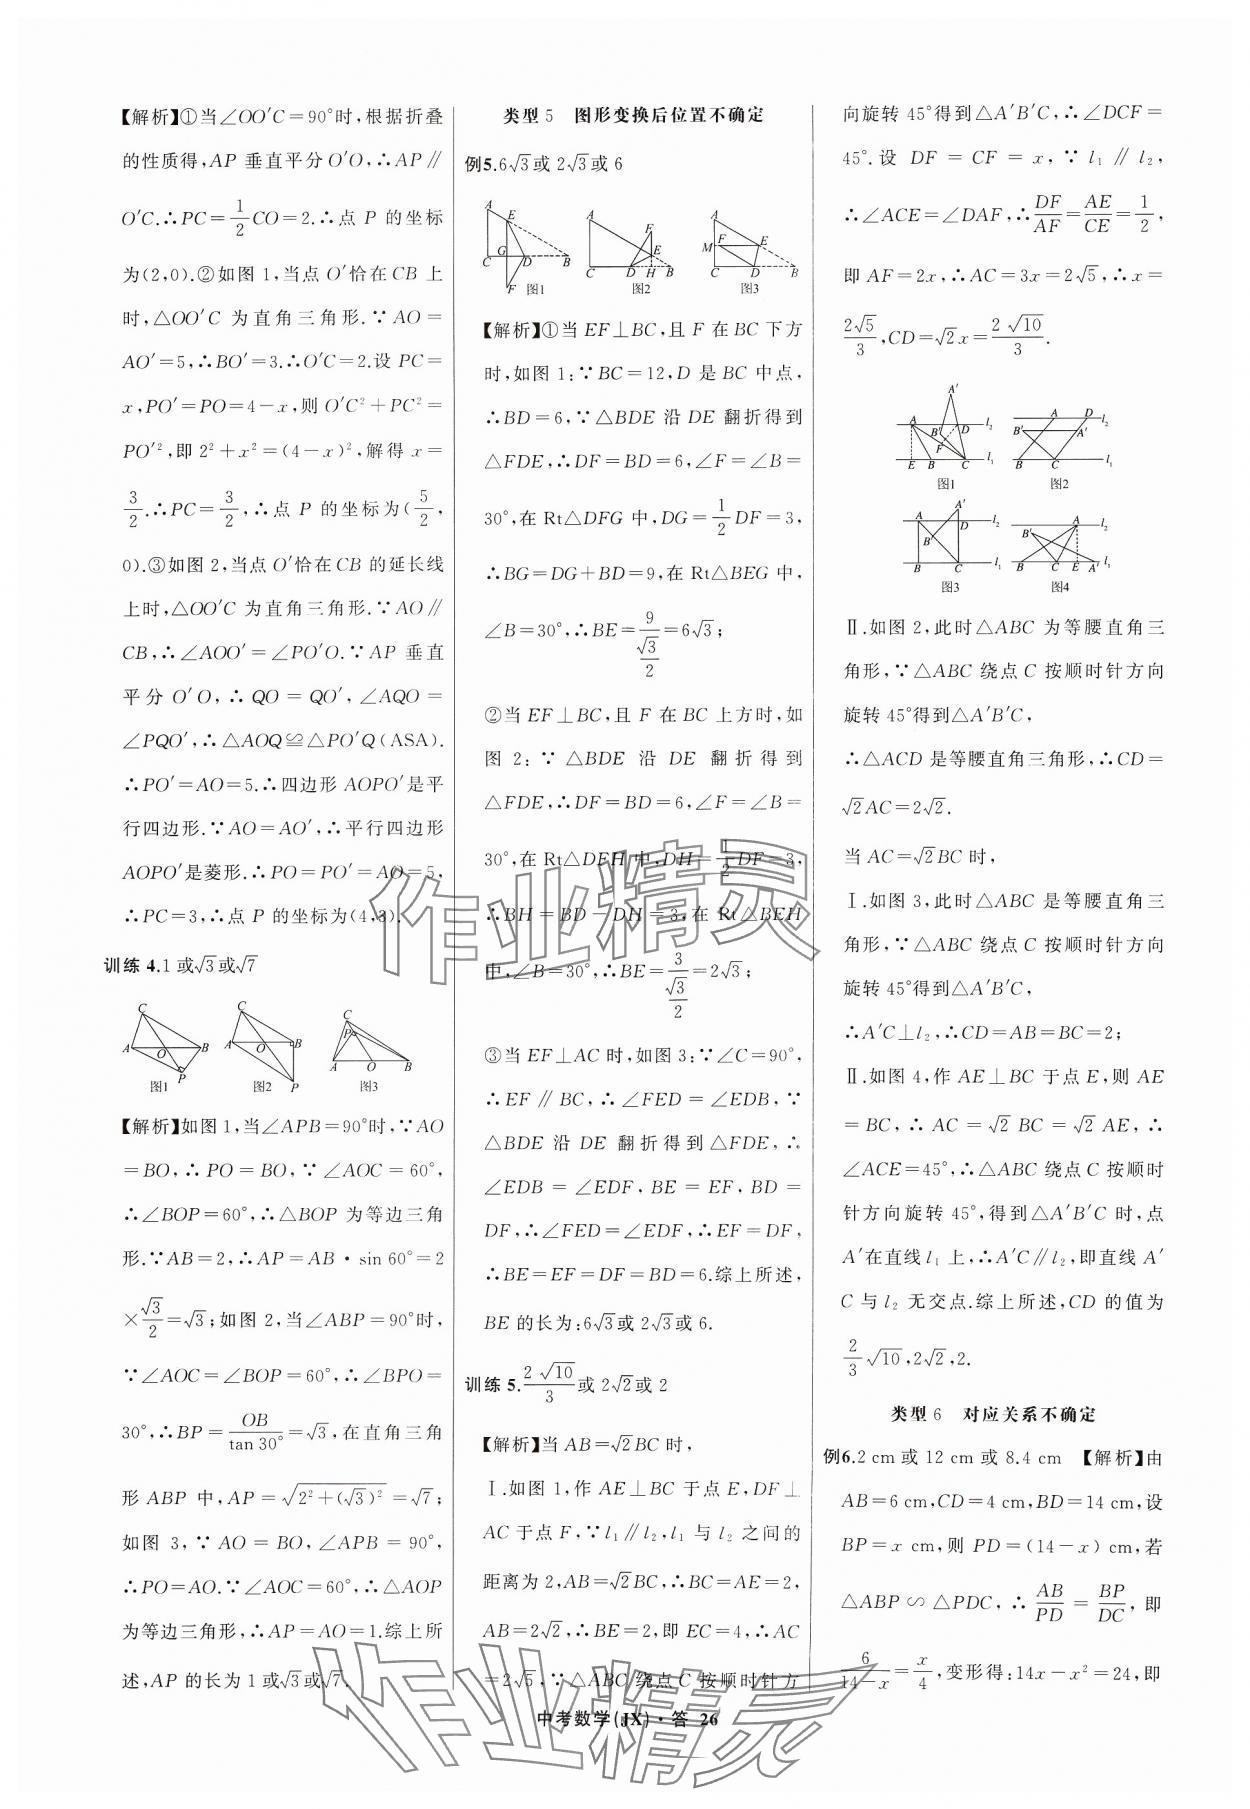 【解析】①当∠OO′C=90°时,根据折叠
的性质得,AP 垂直平分 O′O,∴AP∥
O′C.∴PC=1/2CO=2.∴点 P 的坐标
为(2,0).②如图 1,当点 O′恰在 CB 上
时,△OO′C 为直角三角形.∵AO=
AO′=5,∴BO′=3.∴O′C=2.设 PC=
x,PO′=PO=4-x,则 O′C²+PC²=
PO′²,即 2²+x²=(4-x)²,解得 x=
3/2.∴PC=3/2,∴点 P 的坐标为(5/2,
0).③如图 2,当点 O′恰在 CB 的延长线
上时,△OO′C 为直角三角形.∵AO∥
CB,∴∠AOO′=∠PO′O.∵AP 垂直
平分 O′O,∴QO=QO′,∠AQO=
∠PQO′,∴△AOQ≌△PO′Q(ASA).
∴PO′=AO=5.∴四边形 AOPO′是平
行四边形.∵AO=AO′,∴平行四边形
AOPO′是菱形.∴PO=PO′=AO=5,
∴PC=3,∴点 P 的坐标为(4,3).
训练 4.1 或√3或√7
C A O B P 图1
C A O B P 图2
C P A O B 图3
【解析】如图 1,当∠APB=90°时,∵AO
=BO,∴PO=BO,∵∠AOC=60°,
∴∠BOP=60°,∴△BOP 为等边三角
形.∵AB=2,∴AP=AB·sin 60°=2
×√3/2=√3;如图 2,当∠ABP=90°时,
∵∠AOC=∠BOP=60°,∴∠BPO=
30°,∴BP=OB/tan 30°=√3,在直角三角
形 ABP 中,AP=√(2²+(√3)²)=√7;
如图 3,∵AO=BO,∠APB=90°,
∴PO=AO.∵∠AOC=60°,∴△AOP
为等边三角形,∴AP=AO=1.综上所
述,AP 的长为 1 或√3或√7.
类型 5 图形变换后位置不确定
例5.6√3或 2√3或 6
A E G C D B F 图1
A F E C D H B 图2
A M F E C D B 图3
【解析】①当 EF⊥BC,且 F 在 BC 下方
时,如图 1:∵BC=12,D 是 BC 中点,
∴BD=6,∵△BDE 沿 DE 翻折得到
△FDE,∴DF=BD=6,∠F=∠B=
30°,在 Rt△DFG 中,DG=1/2DF=3,
∴BG=DG+BD=9,在 Rt△BEG 中,
∠B=30°,∴BE=9/(√3/2)=6√3;
②当 EF⊥BC,且 F 在 BC 上方时,如
图 2:∵△BDE 沿 DE 翻折得到
△FDE,∴DF=BD=6,∠F=∠B=
30°,在 Rt△DEH 中,DH=1/2DF=3,
∴BH=BD-DH=3,在 Rt△BEH
中,∠B=30°,∴BE=3/(√3/2)=2√3;
③当 EF⊥AC 时,如图 3:∵∠C=90°,
∴EF∥BC,∴∠FED=∠EDB,∵
△BDE 沿 DE 翻折得到△FDE,∴
∠EDB=∠EDF,BE=EF,BD=
DF,∴∠FED=∠EDF,∴EF=DF,
∴BE=EF=DF=BD=6.综上所述,
BE 的长为:6√3或 2√3或 6.
训练 5.2√10/3或 2√2或 2
【解析】当 AB=√2BC 时,
Ⅰ.如图 1,作 AE⊥BC 于点 E,DF⊥
AC 于点 F,∵l₁∥l₂,l₁ 与 l₂ 之间的
距离为 2,AB=√2BC,∴BC=AE=2,
AB=2√2,∴BE=2,即 EC=4,∴AC
=2√5,∵△ABC 绕点 C 按顺时针方
向旋转 45°得到△A′B′C,∴∠DCF=
45°.设 DF=CF=x,∵l₁∥l₂,
∴∠ACE=∠DAF,∴DF/AF=AE/CE=1/2,
即 AF=2x,∴AC=3x=2√5,∴x=
2√5/3,CD=√2x=2√10/3.
A′ A B′ D l₂ F E B C l₁ 图1
A D l₂ B′ A′ B C l₁ 图2
A′ A D l₂ B′ B C l₁ 图3
A l₂ B′ B C E A′ l₁ 图4
Ⅱ.如图 2,此时△ABC 为等腰直角三
角形,∵△ABC 绕点 C 按顺时针方向
旋转 45°得到△A′B′C,
∴△ACD 是等腰直角三角形,∴CD=
√2AC=2√2.
当 AC=√2BC 时,
Ⅰ.如图 3,此时△ABC 是等腰直角三
角形,∵△ABC 绕点 C 按顺时针方向
旋转 45°得到△A′B′C,
∴A′C⊥l₂,∴CD=AB=BC=2;
Ⅱ.如图 4,作 AE⊥BC 于点 E,则 AE
=BC,∴AC=√2BC=√2AE,∴
∠ACE=45°,∴△ABC 绕点 C 按顺时
针方向旋转 45°,得到△A′B′C 时,点
A′在直线 l₁ 上,∴A′C∥l₂,即直线 A′
C 与 l₂ 无交点.综上所述,CD 的值为
2/3√10,2√2,2.
类型 6 对应关系不确定
例6.2 cm 或 12 cm 或 8.4 cm 【解析】由
AB=6 cm,CD=4 cm,BD=14 cm,设
BP=x cm,则 PD=(14-x)cm,若
△ABP∽△PDC,∴AB/PD=BP/DC,即
6/(14-x)=x/4,变形得:14x-x²=24,即
中考数学(JX)·答 26
作业精灵
作业精灵